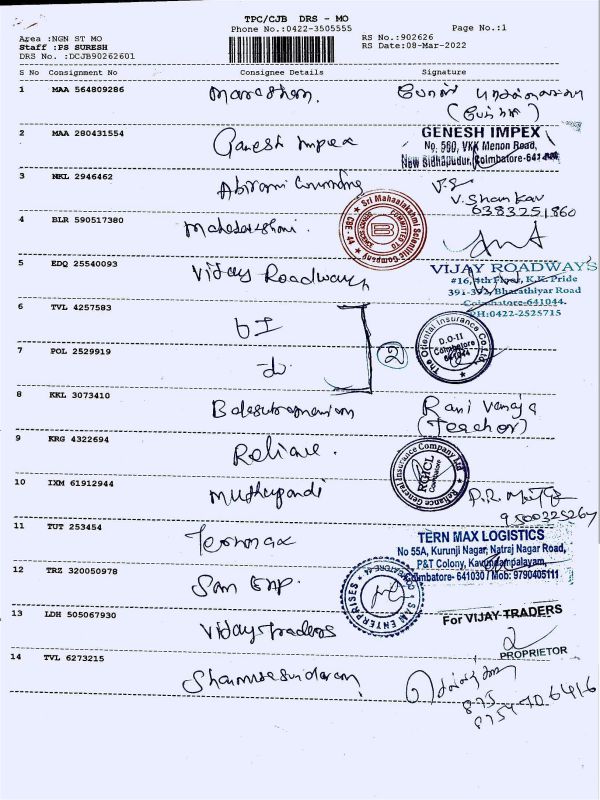 TPC/CJB DRS - MO
Phone No.:0422-3505555
Page No.:1
Area :NGN ST MO
Staff :PS SURESH
DRS No. :DCJB90262601
RS No.:902626
RS Date:08-Mar-2022
S No Consignment No Consignee Details Signature
1 MAA 564809286
2 MAA 280431554 Ganesh Impex
GENESH IMPEX
No. 560, VKK Menon Road,
New Sidhapudur, Coimbatore-641
3 NKL 2946462 Abirami
V. Shankar
6383251860
4 BLR 590517380
Sri Mahaalakshmi Scientific Company
CBE-44
B
5 EDQ 25540093 Vijay Roadways
VIJAY ROADWAYS
#16, 4th Floor, K.K. Pride
391-392, Bharathiyar Road
Coimbatore-641044.
PH:0422-2525715
6 TVL 4257583 OI
The Oriental Insurance Co. Ltd.
D.O-II
Coimbatore
641044
7 POL 2529919 do
2
8 KKL 3073410 Balasubramaniam
Rani Vanaja
(Teachor)
9 KRG 4322694 Reliance.
Reliance General Insurance Company Ltd
RGICL
10 IXM 61912944 Muthupandi
11 TUT 253454 Termmax
TERN MAX LOGISTICS
No 55A, Kurunji Nagar, Natraj Nagar Road,
P&T Colony, Kavundampalayam,
Coimbatore- 641030 / Mob: 9790405111
12 TRZ 320050978 Sam Enp.
SAM ENTERPRISES
13 LDH 505067930 Vijay Traders
For VIJAY TRADERS
PROPRIETOR
14 TVL 6273215 Shanmugasundaram
875